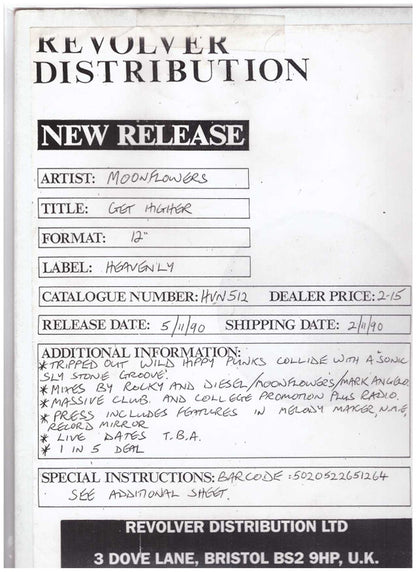 REVOLVER
DISTRIBUTION
NEW RELEASE
ARTIST: MOONFLOWERS
TITLE: GET HIGHER
FORMAT: 12"
LABEL: HEAVENLY
CATALOGUE NUMBER: HVN512 DEALER PRICE: 2-15
RELEASE DATE: 5/11/90 SHIPPING DATE: 2/11/90
ADDITIONAL INFORMATION:
* TRIPPED OUT WILD HIPPY PUNKS COLLIDE WITH A 'SONIC
SLY STONE GROOVE'.
* MIXES BY ROCKY AND DIESEL/MOONFLOWERS/MARK ANGELO
* MASSIVE CLUB. AND COLLEGE PROMOTION PLUS RADIO.
* PRESS INCLUDES FEATURES IN MELODY MAKER, N.M.E,
RECORD MIRROR
* LIVE DATES T.B.A.
* 1 IN 5 DEAL
SPECIAL INSTRUCTIONS: BARCODE: 5020522651264
SEE ADDITIONAL SHEET.
REVOLVER DISTRIBUTION LTD
3 DOVE LANE, BRISTOL BS2 9HP, U.K.